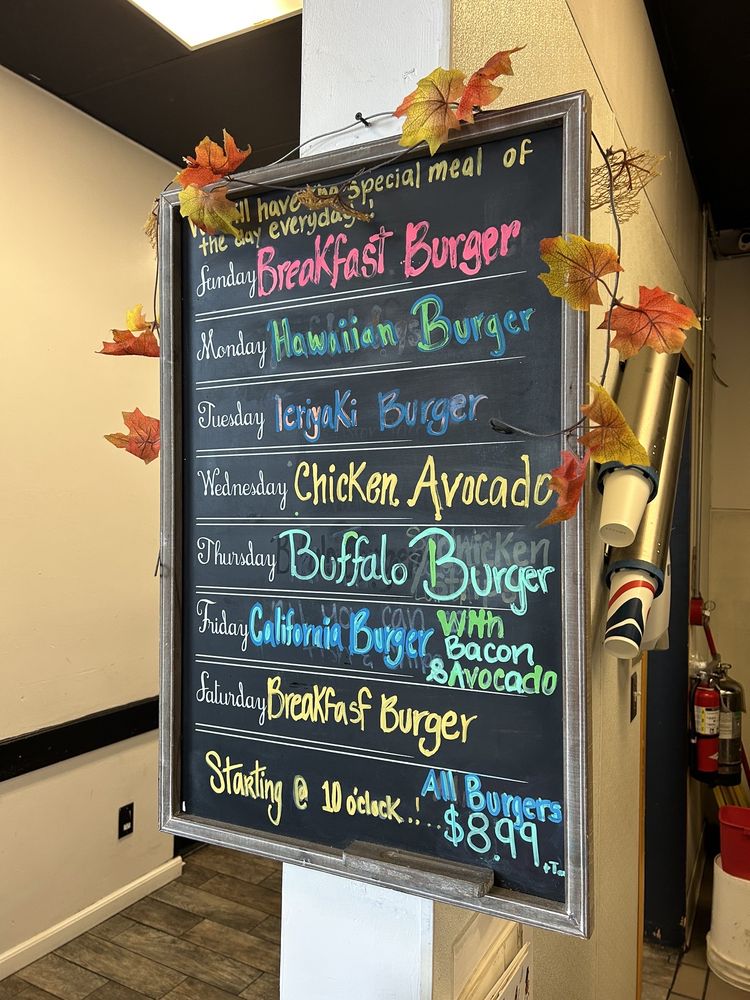 have the special meal of
the day everyday!!
Sunday Breakfast Burger
Monday Hawaiian Burger
Tuesday Teriyaki Burger
Wednesday Chicken Avocado
Thursday Buffalo Burger
Friday California Burger With
Bacon
& Avocado
Saturday Breakfast Burger
Starting @ 10 o'clock!... All Burgers
$8.99